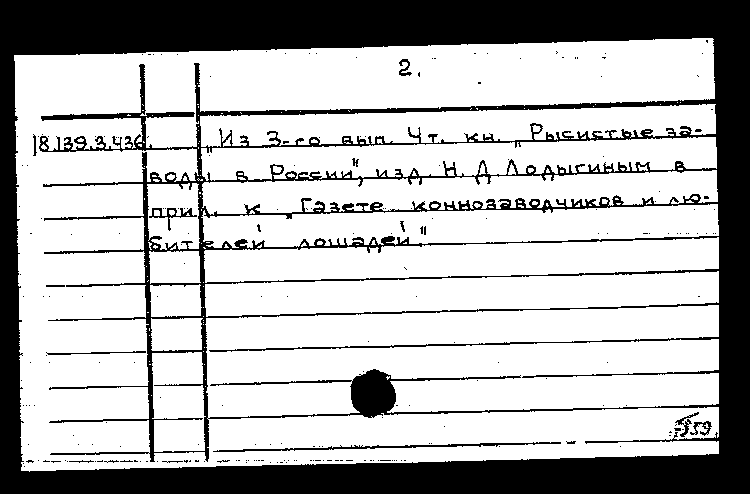 2.
18.139.3.436. „Из 3-го вып. Чт. кн. „Рысистые за-
воды в России", изд. Н. Д. Лодыгиным в
прил. к „Газете коннозаводчиков и лю-
бителей лошадей".